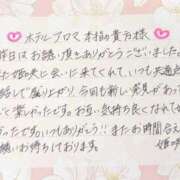 ホテルプロマ 本指の貴方様
昨日はお誘い頂きありがとうございました
た姫咲に会いに来てくれて、いつも共通点
で盛り上がり 今回も新しい発見があって
て楽しかったです。お互い気持ち良くとなれ
のたです。いつもありがとう!!またお時間合え
お誘いお待ちしております。
姫咲